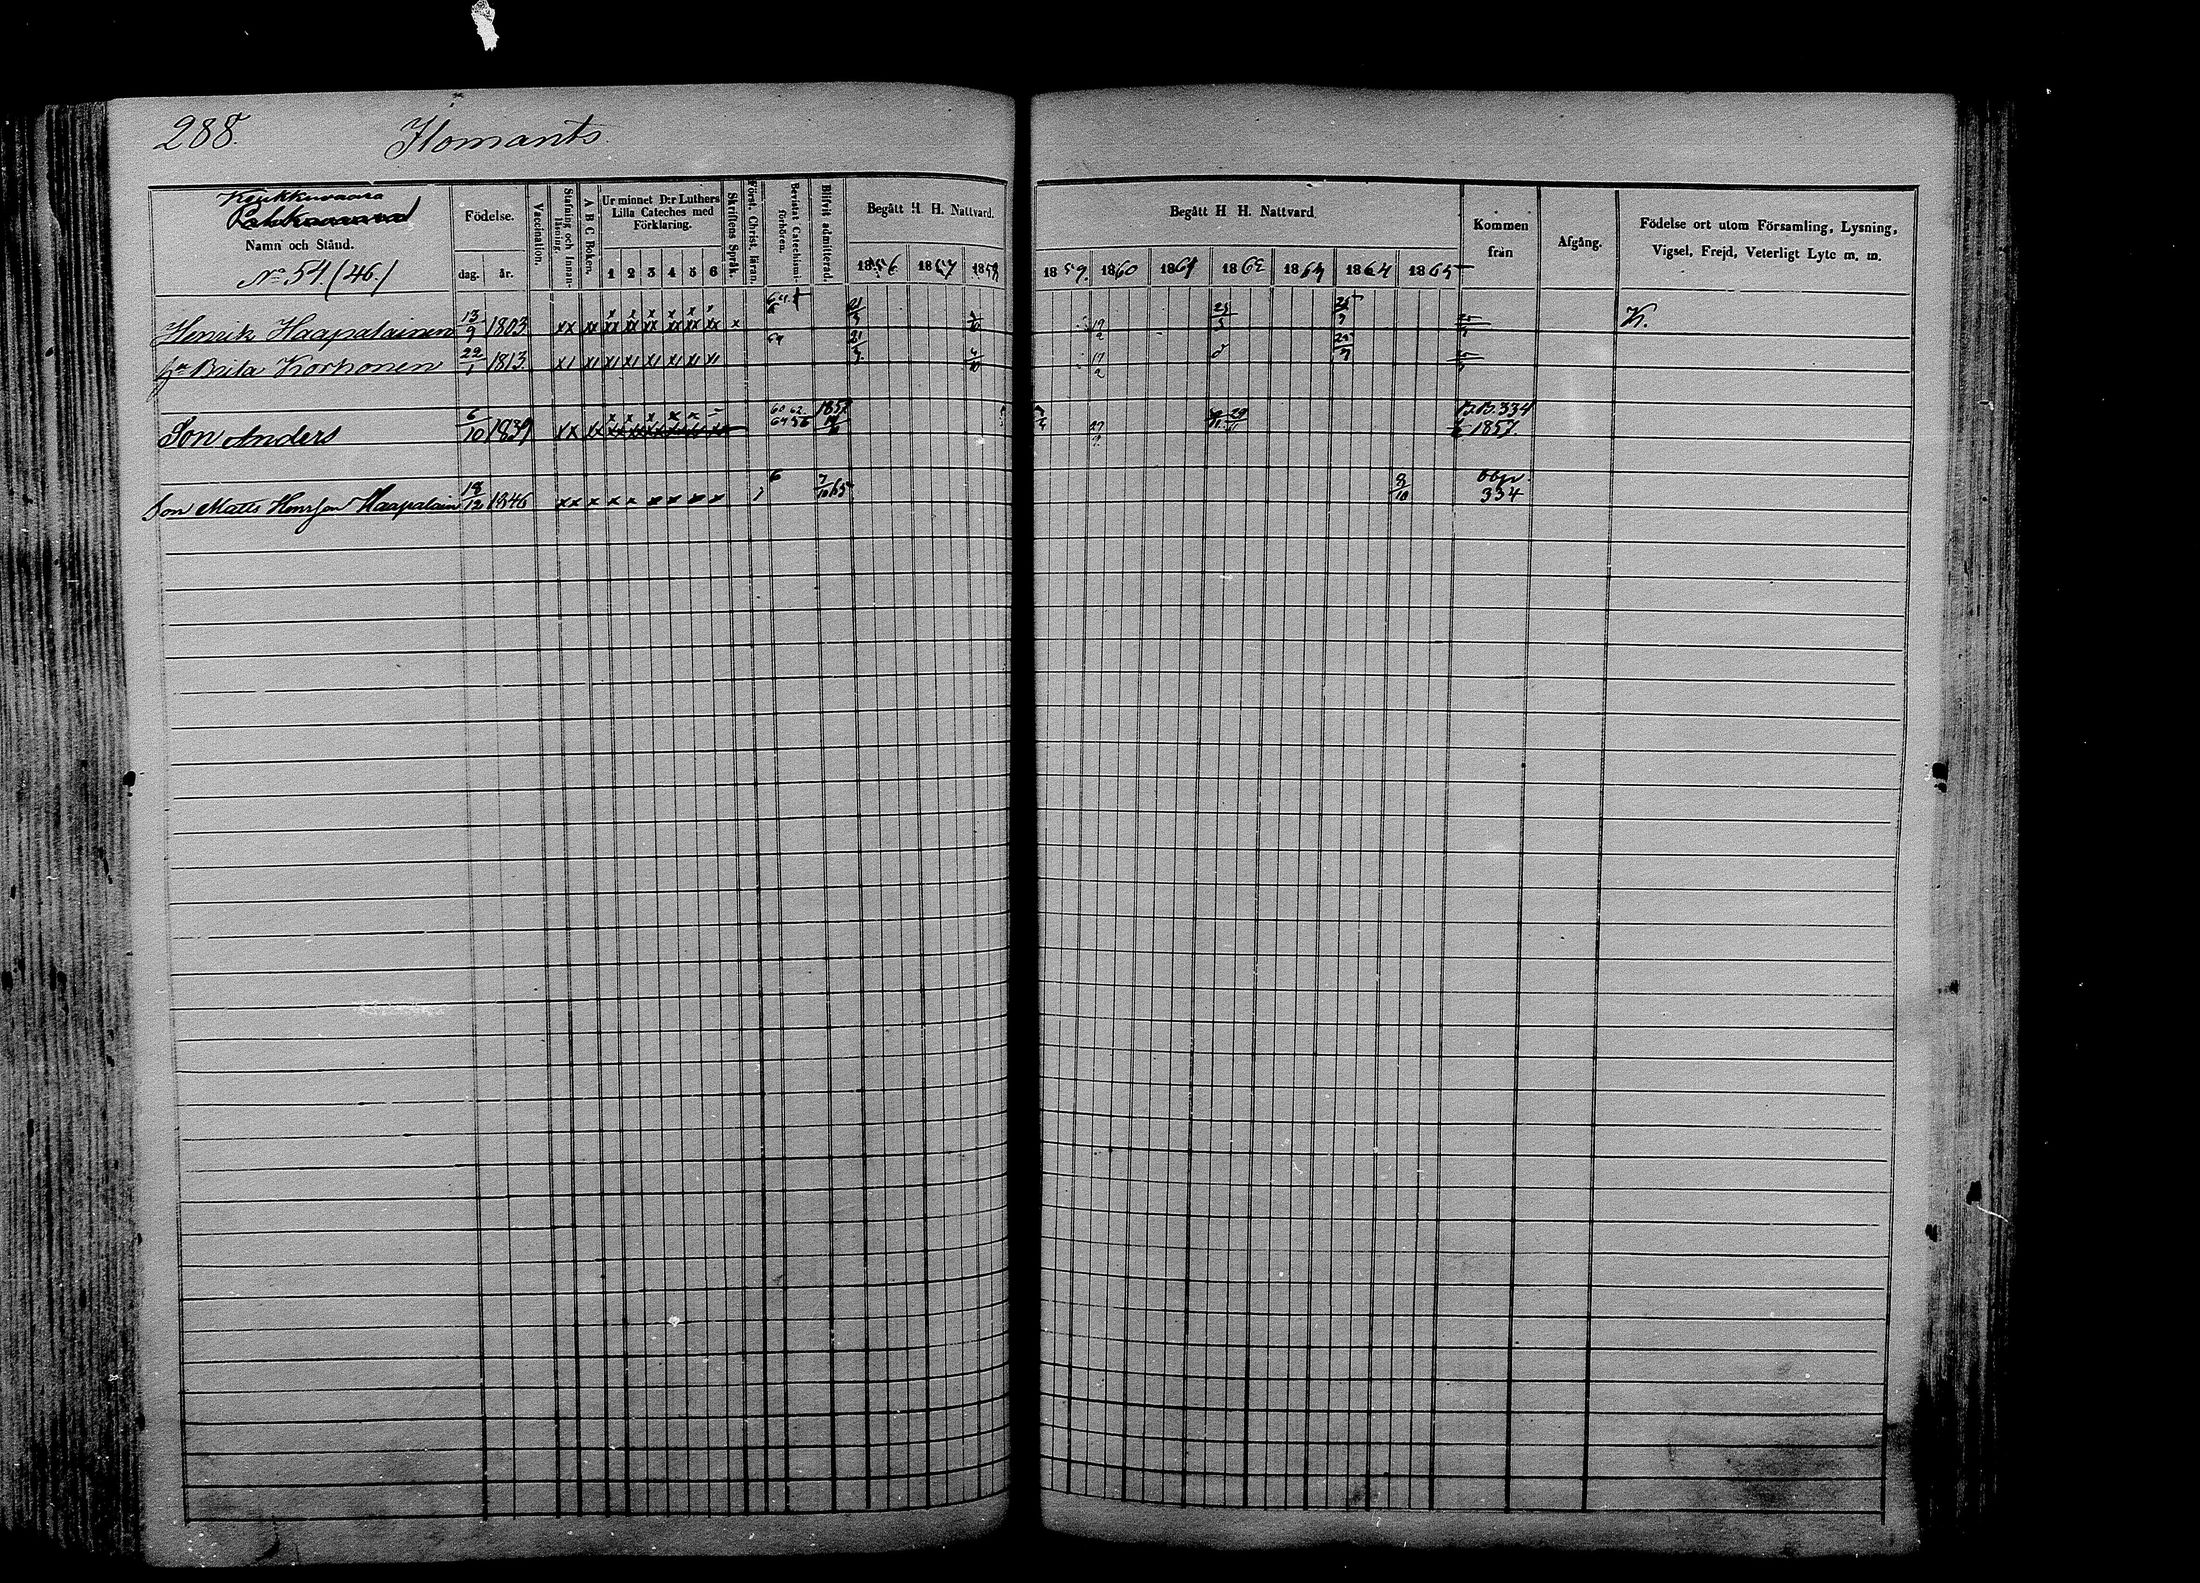 288. Ilomants
Kuukkuvaara
Namn och Stånd.
No 54 (46.)
Födelse.
dag. år.
Vaccination.
Stafning och Innanläsning.
A B C Boken.
Ur minnet D:r Luthers Lilla Cateches med Förklaring.
1 2 3 4 5 6
Skriftens Språk.
Först. Christ. läran.
Bevistat Catechismiförhören.
Blifvit admitterad.
Begått H. H. Nattvard.
1856 1857 1858
Begått H. H. Nattvard.
1859. 1860 1861 1862 1863 1864 1865
Kommen från
Afgång.
Födelse ort utom Församling, Lysning, Vigsel, Frejd, Veterligt Lyte m. m.
Henrik Haapalainen 13/9 1803 xx xx xx xx xx xx xx xx x 21/3 19/2 25/3 25/3 K.
Hu Brita Korhonen 22/1 1813. 21/3 17/2 25/3
Son Anders 6/10 1839 60 62 1857 B.B. 334 1857.
Son Matts Henrsson Haapalain 18/12 1846 xx x x x x x x x 7/10 65 8/10 334